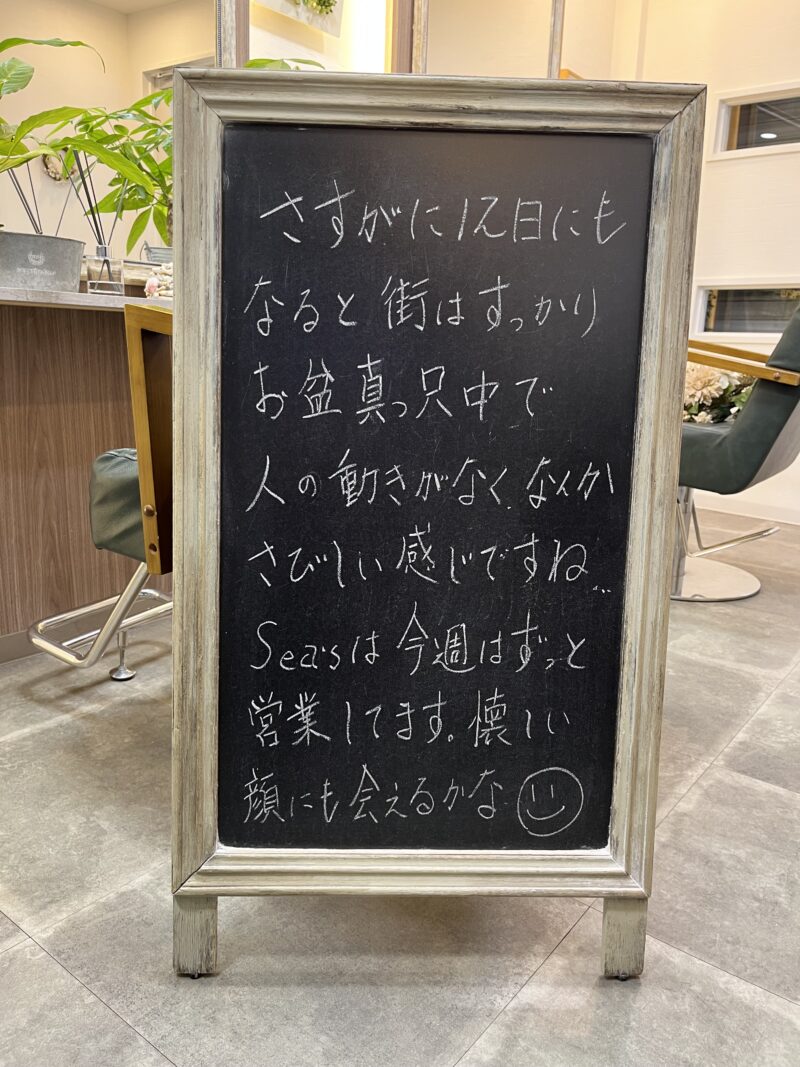 さすがに12日にも
なると街はすっかり
お盆真っ只中で
人の動きがなく、なんか
さびしい感じですね...
Sea'sは今週はずっと
営業してます。懐しい
顔にも会えるかな